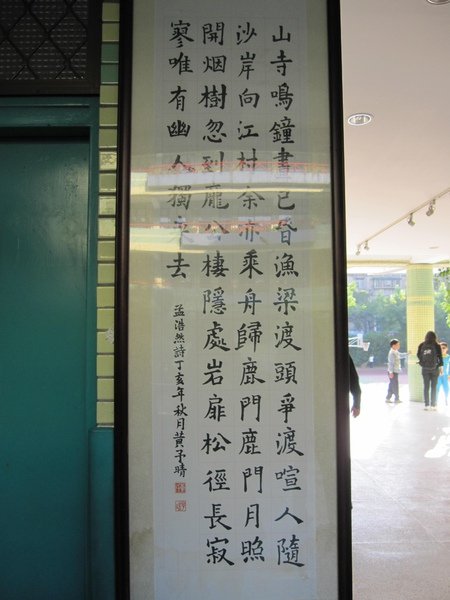 山寺鳴鐘晝已昏漁梁渡頭爭渡喧人隨
沙岸向江村余亦乘舟歸鹿門鹿門月照
開烟樹忽到龐公棲隱處岩扉松徑長寂
寥唯有幽人獨來去
孟浩然詩丁亥年秋月黃予晴